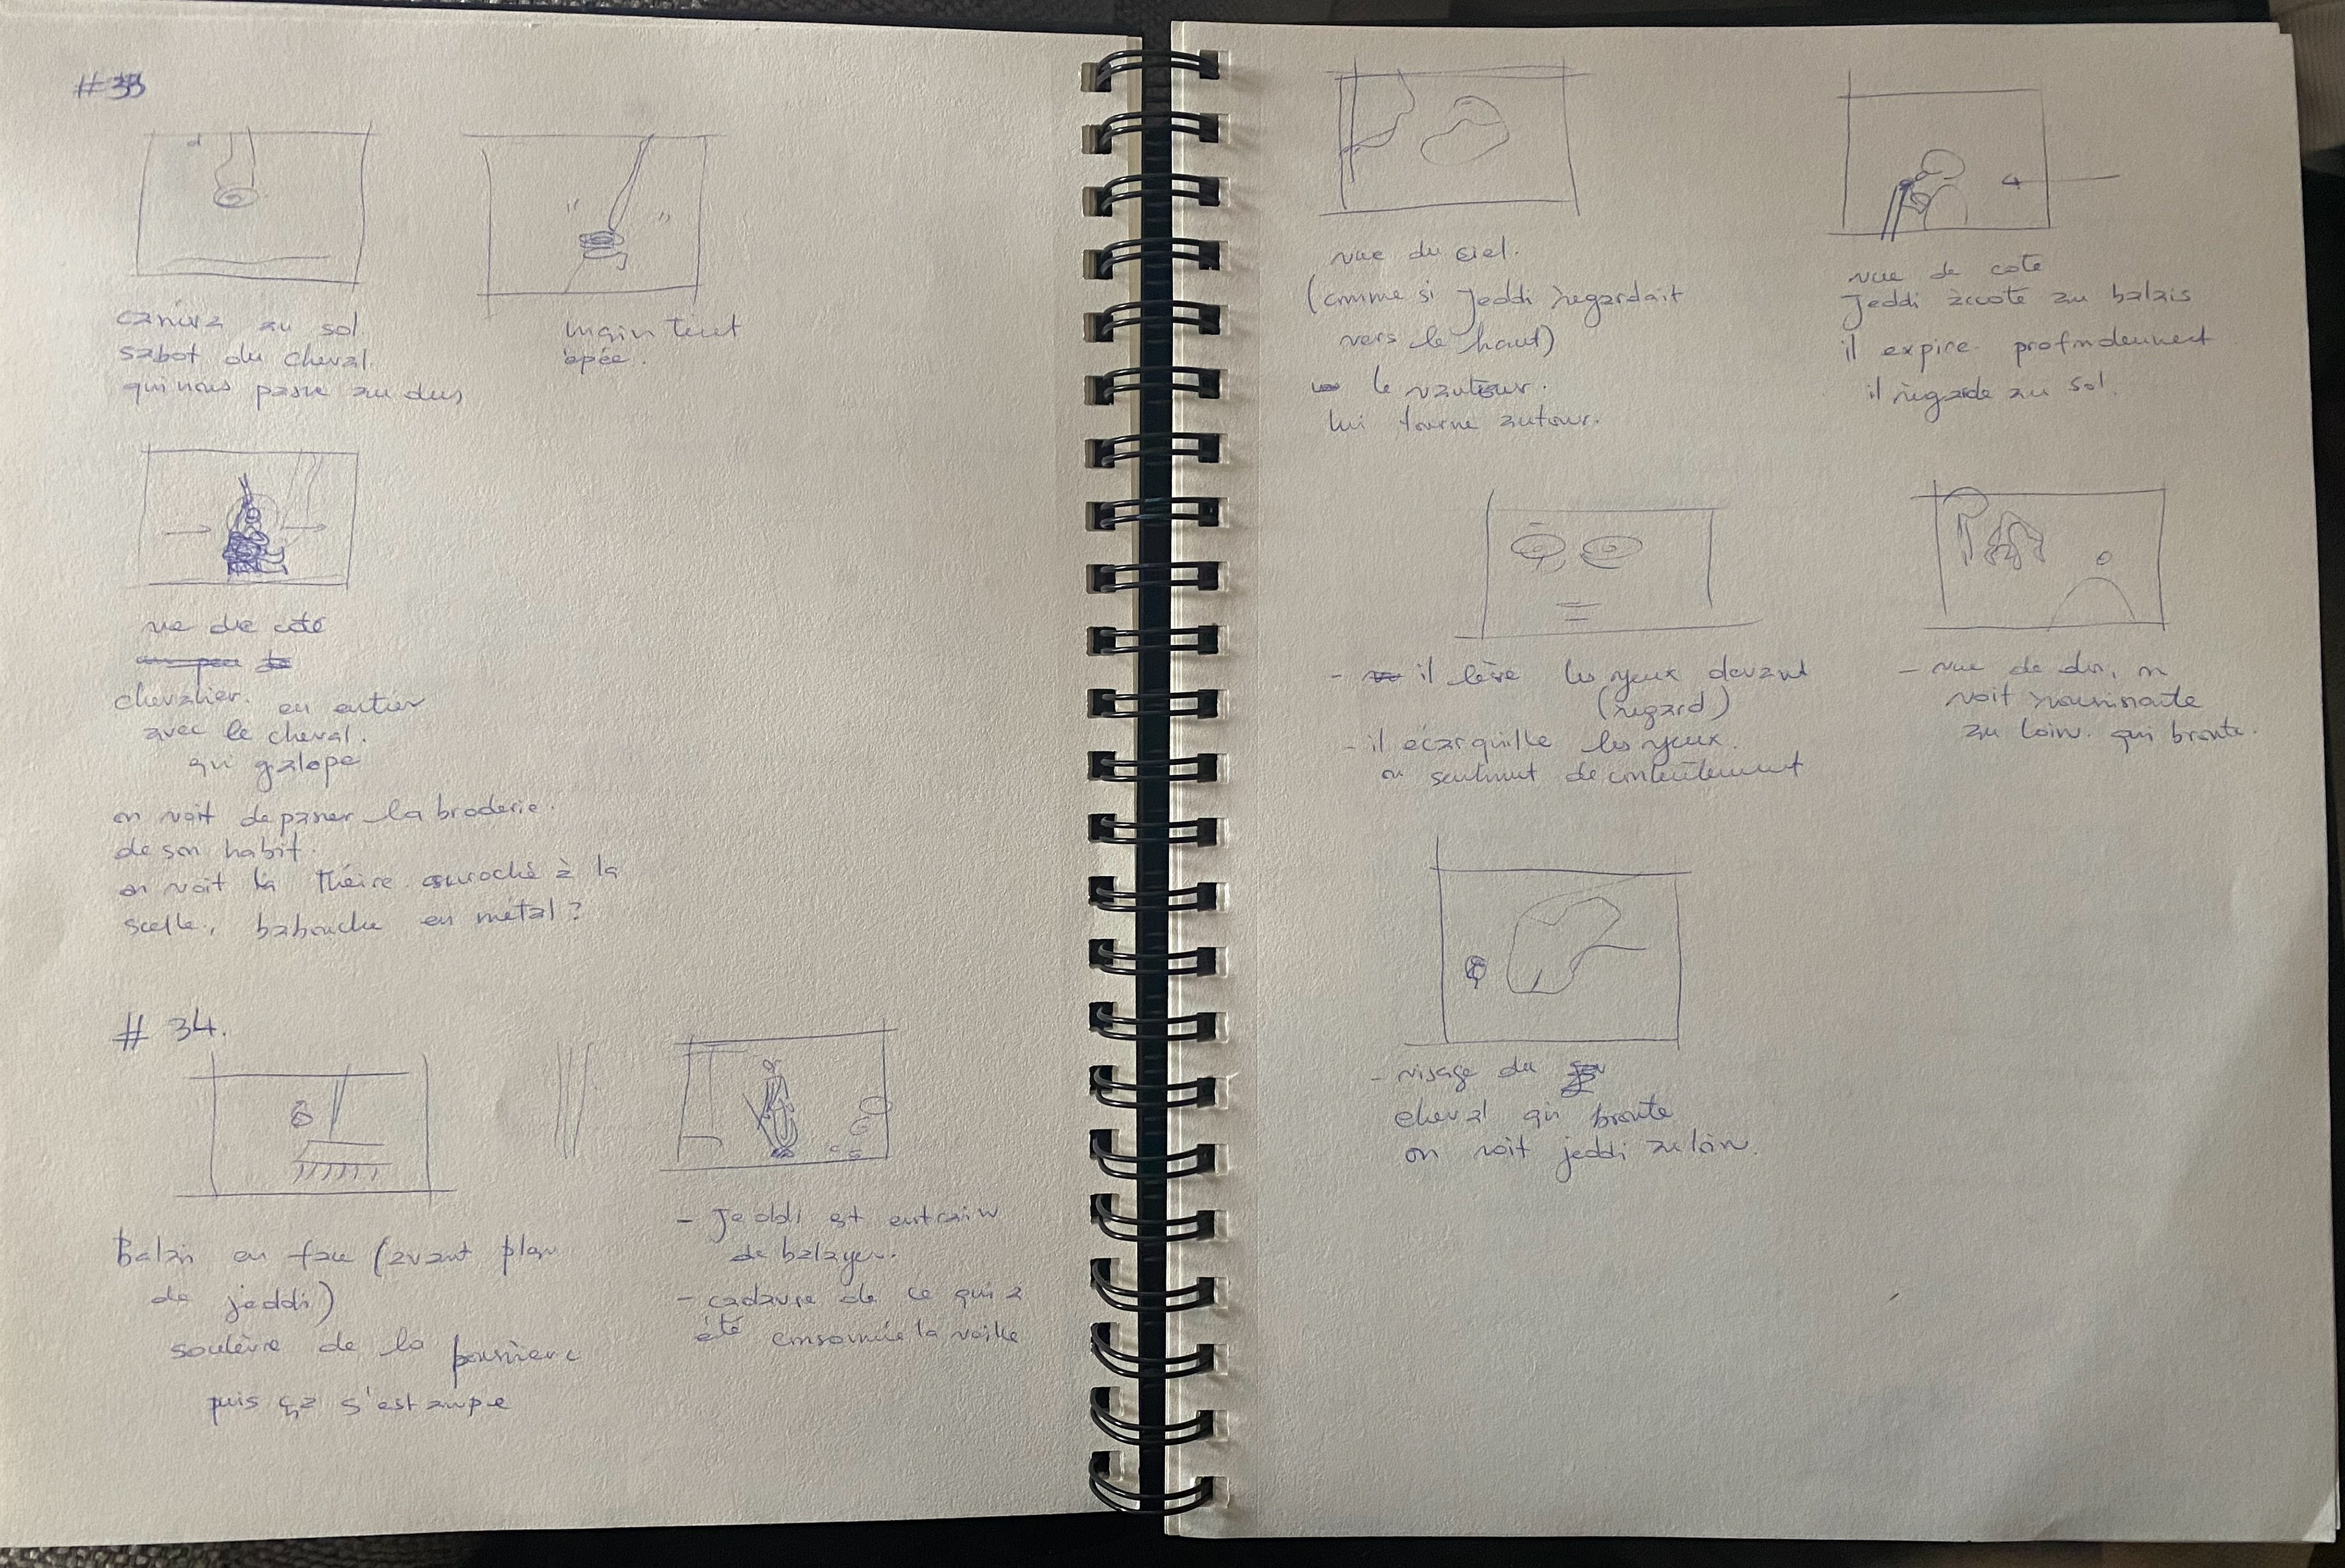 #33
caméra au sol.
sabot du cheval.
qui nous passe au dus
main tient
épée.
vue de coté
chevalier. en entier
avec le cheval.
qui galope
on voit depasser la broderie.
de son habit.
on voit la théire accroché à la
scelle, babouche en métal?
# 34.
Balai en face (avant plan
de jeddi)
soulève de la poussière
puis ça s'estampe
- Jeddi est entrain
de balayer.
- cadavre de ce qui a
été consomée la veille
vue du ciel.
(comme si Jeddi regardait
vers le haut)
le vautour.
lui tourne autour.
vue de coté
Jeddi accoté au balais
il expire profondemment
il regarde au sol.
- il lève les yeux devant
(regard)
- il écarquille les yeux.
un sentiment de contentement
- vue de dos, on
voit
au loin. qui broute.
- visage du
cheval qui broute
on voit jeddi au loin.